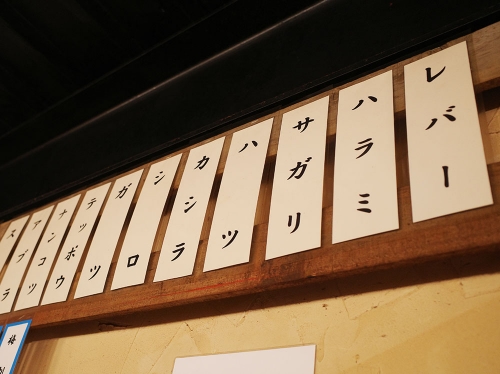 レバー
ハラミ
サガリ
ハツ
カシラ
シロ
ガツ
テッポウ
ナンコツ
アブラ